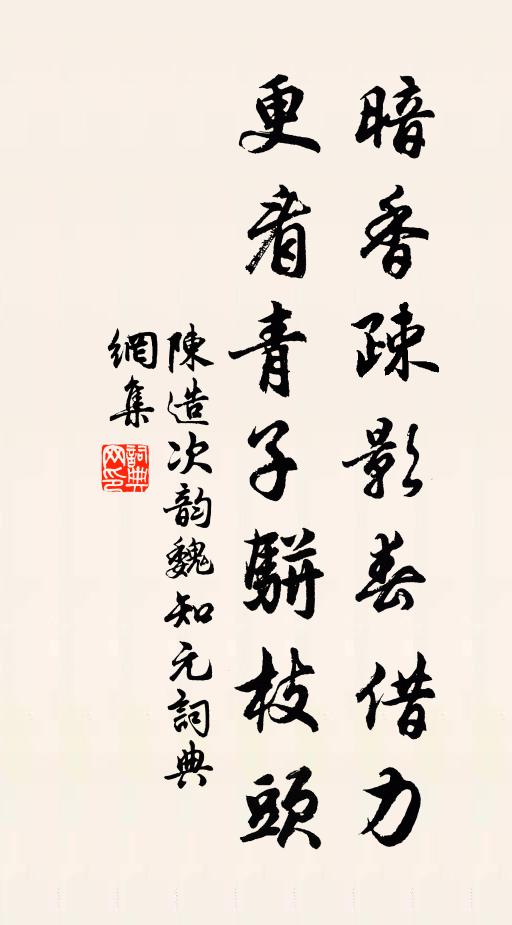 暗香疎影春借力
更看青子駢枝頭
陳造次韵魏知元詞典
網集
詞典
网印